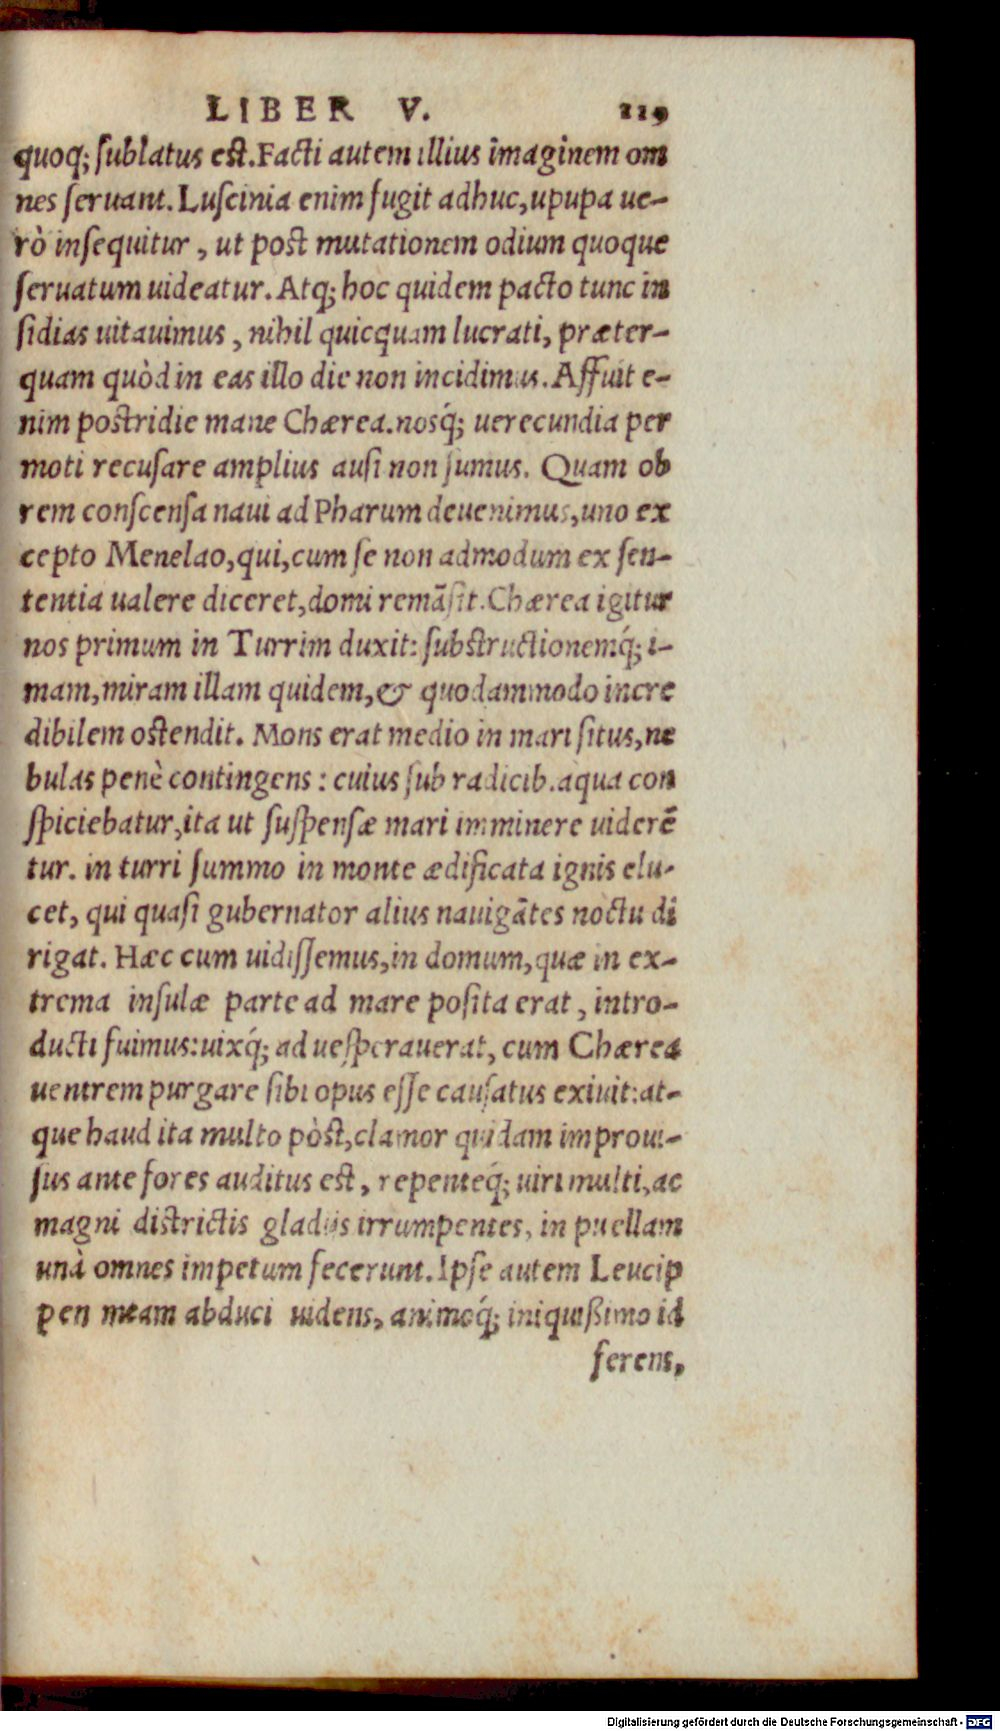 LIBER V. 119
quoq; sublatus est. Facti autem illius imaginem om
nes seruant. Luscinia enim fugit adhuc, upupa ue-
rò insequitur, ut post mutationem odium quoque
seruatum uideatur. Atq; hoc quidem pacto tunc in
sidias uitauimus, nihil quicquam lucrati, præter-
quam quòd in eas illo die non incidimus. Affuit e-
nim postridie mane Chærea. nosq́; uerecundia per
moti recusare amplius ausi non sumus. Quam ob
rem conscensa naui ad Pharum deuenimus, uno ex
cepto Menelao, qui, cum se non admodum ex sen-
tentia ualere diceret, domi remãsit. Chærea igitur
nos primum in Turrim duxit: substructionemq́; i-
mam, miram illam quidem, & quodammodo incre
dibilem ostendit. Mons erat medio in mari situs, ne
bulas penè contingens: cuius sub radicib. aqua con
spiciebatur, ita ut suspensæ mari imminere uiderẽ
tur. in turri summo in monte ædificata ignis elu-
cet, qui quasi gubernator alius nauigãtes noctu di
rigat. Hæc cum uidissemus, in domum, quæ in ex-
trema insulæ parte ad mare posita erat, intro-
ducti fuimus: uixq́; aduesperauerat, cum Chærea
uentrem purgare sibi opus esse causatus exiuit: at-
que haud ita multo pòst, clamor quidam improui-
sus ante fores auditus est, repenteq́; uiri multi, ac
magni districtis gladijs irrumpentes, in puellam
unà omnes impetum fecerunt. Ipse autem Leucip
pen meam abduci uidens, animoq́; iniquißimo id
ferens,
Digitalisierung gefördert durch die Deutsche Forschungsgemeinschaft - DFG